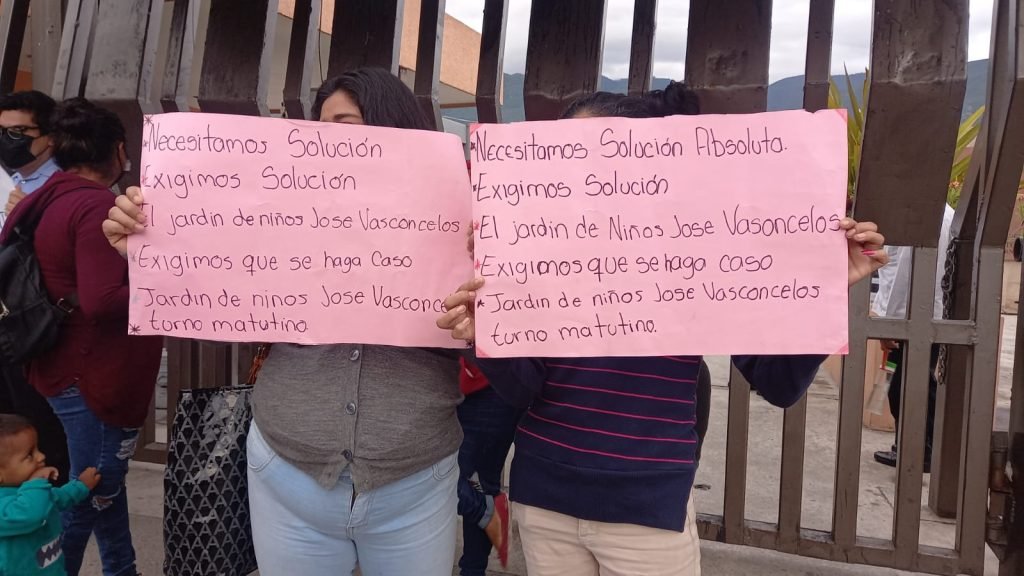 *Necesitamos Solución
*Exigimos Solución
*El jardin de niños Jose Vasconcelos
*Exigimos que se haga caso
*Jardin de ninos Jose Vasconce
turno matutino.
*Necesitamos Solución Absoluta.
*Exigimos Solución
*El jardin de Niños Jose Vasoncelos
*Exigimos que se haga caso
*Jardin de niños Jose Vasconcelos
turno matutino.